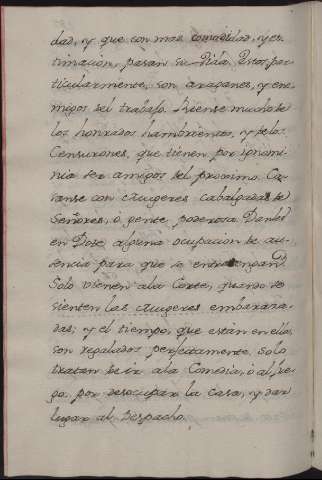 dad, y que con mas comodidad, y es-
timacion, pasan su Vida. Estos par-
ticularmente, son araganes, y ene-
migos del trabajo. Riense mucho de
los honrados hambrientos, y de los
Censurones, que tienen por ignomi-
nia ser amigos del proximo. Ca-
sanse con Mugeres cabalgadas de
Señores, ò gente poderosa. Danles
en Dote, alguna ocupacion de au-
sencia para que se entretengan.
Solo vienen ala Corte, quando se
sienten las Mugeres embaraza-
das; y el tiempo, que estàn en ella,
son regalados perfectamente. Solo
tratan de ir ala Comedia, ò al jue-
go, por desocupar la Casa, y dar
lugar al Despacho.